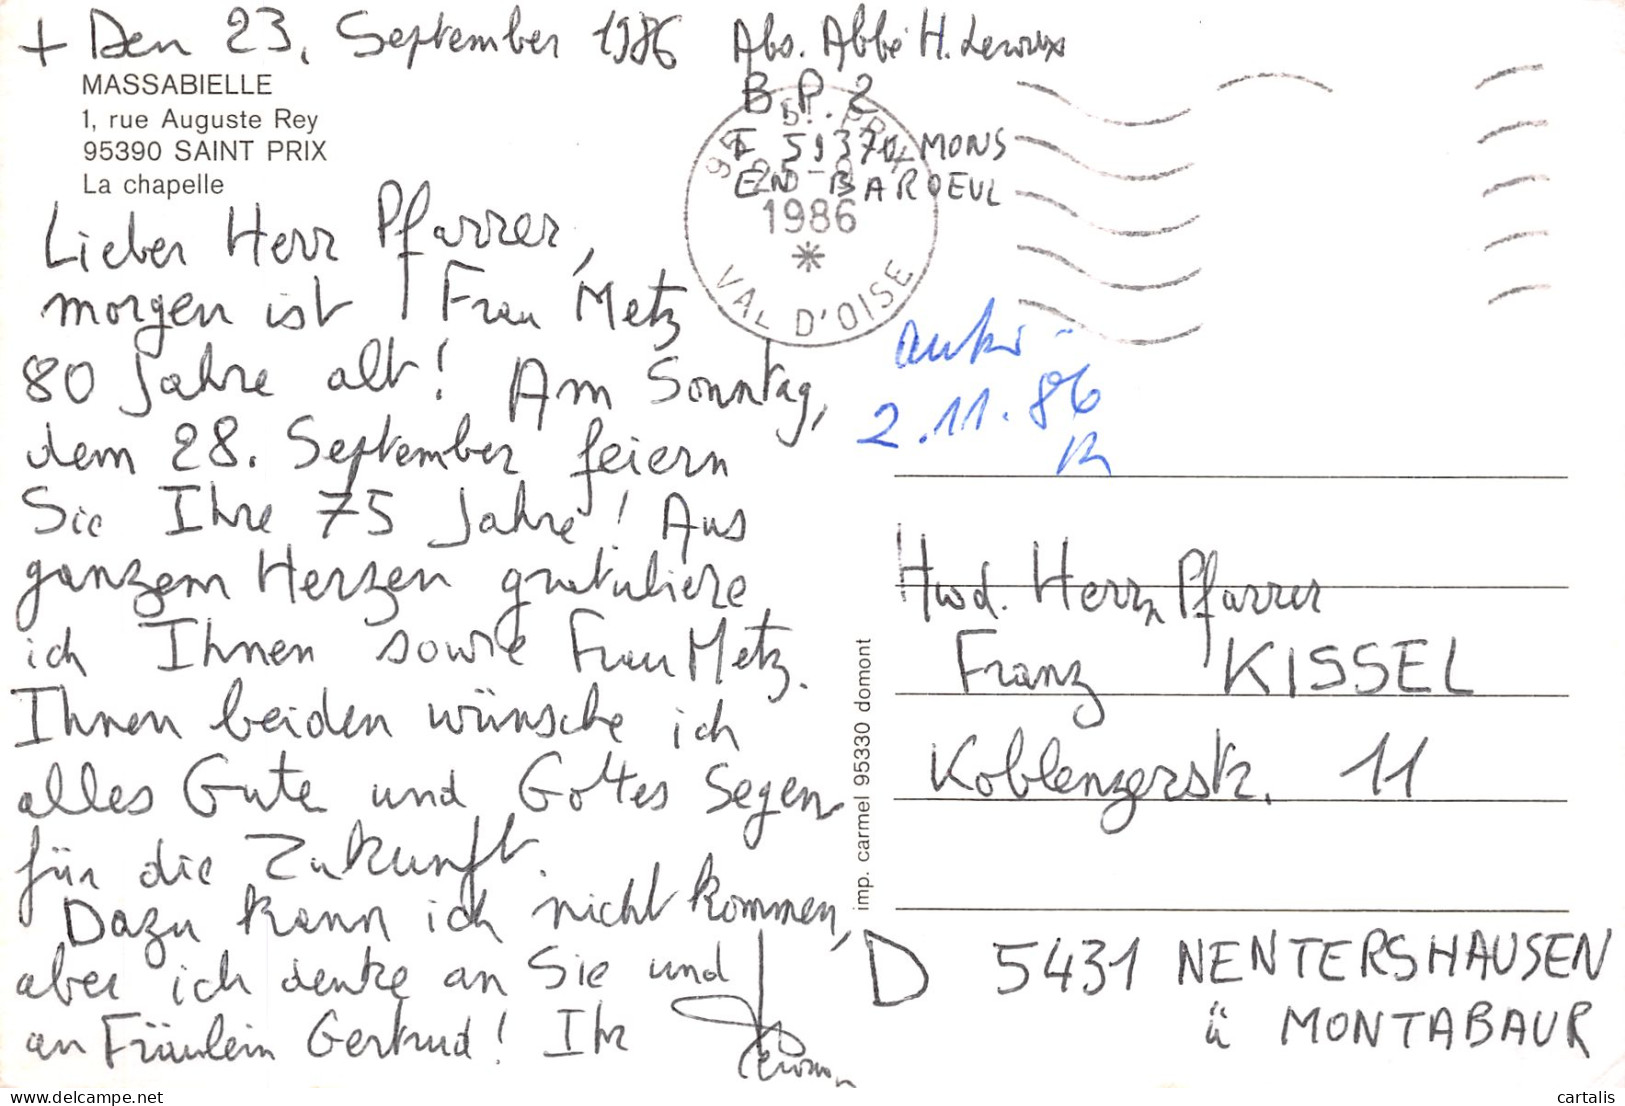 + Den 23. September 1986
MASSABIELLE
1, rue Auguste Rey
95390 SAINT PRIX
La chapelle
Lieber Herr Pfarrer,
morgen ist Frau Metz
80 Jahre alt! Am Sonntag,
dem 28. September feiern
Sie Ihre 75 Jahre! Aus
ganzem Herzen gratuliere
ich Ihnen sowie Frau Metz.
Ihnen beiden wünsche ich
alles Gute und Gottes Segen
für die Zukunft.
Dazu kann ich nicht kommen,
aber ich denke an Sie und
an Fräulein Gertrud! Ihr
Abs. Abbé H. Leroux
B.P. 2
F 59370 MONS
EN BAROEUL
1986
VAL D'OISE
2.11.86
imp. carmel 95330 domont
Hwd. Herrn Pfarrer
Franz KISSEL
Koblenzerstr. 11
D 5431 NENTERSHAUSEN
ü MONTABAUR
cartalis